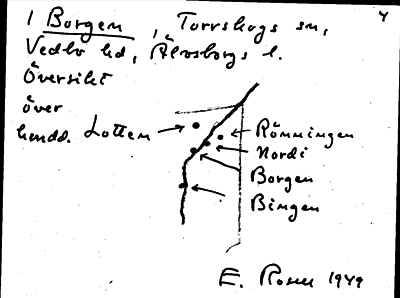 1 Borgen, Torrskogs sn,
Vedbo hd, Älvsborgs l.
Översikt
över
hmdd.
Lotten
Rönningen
Nordi
Borgen
Bingen
E. Rosell 1949
4